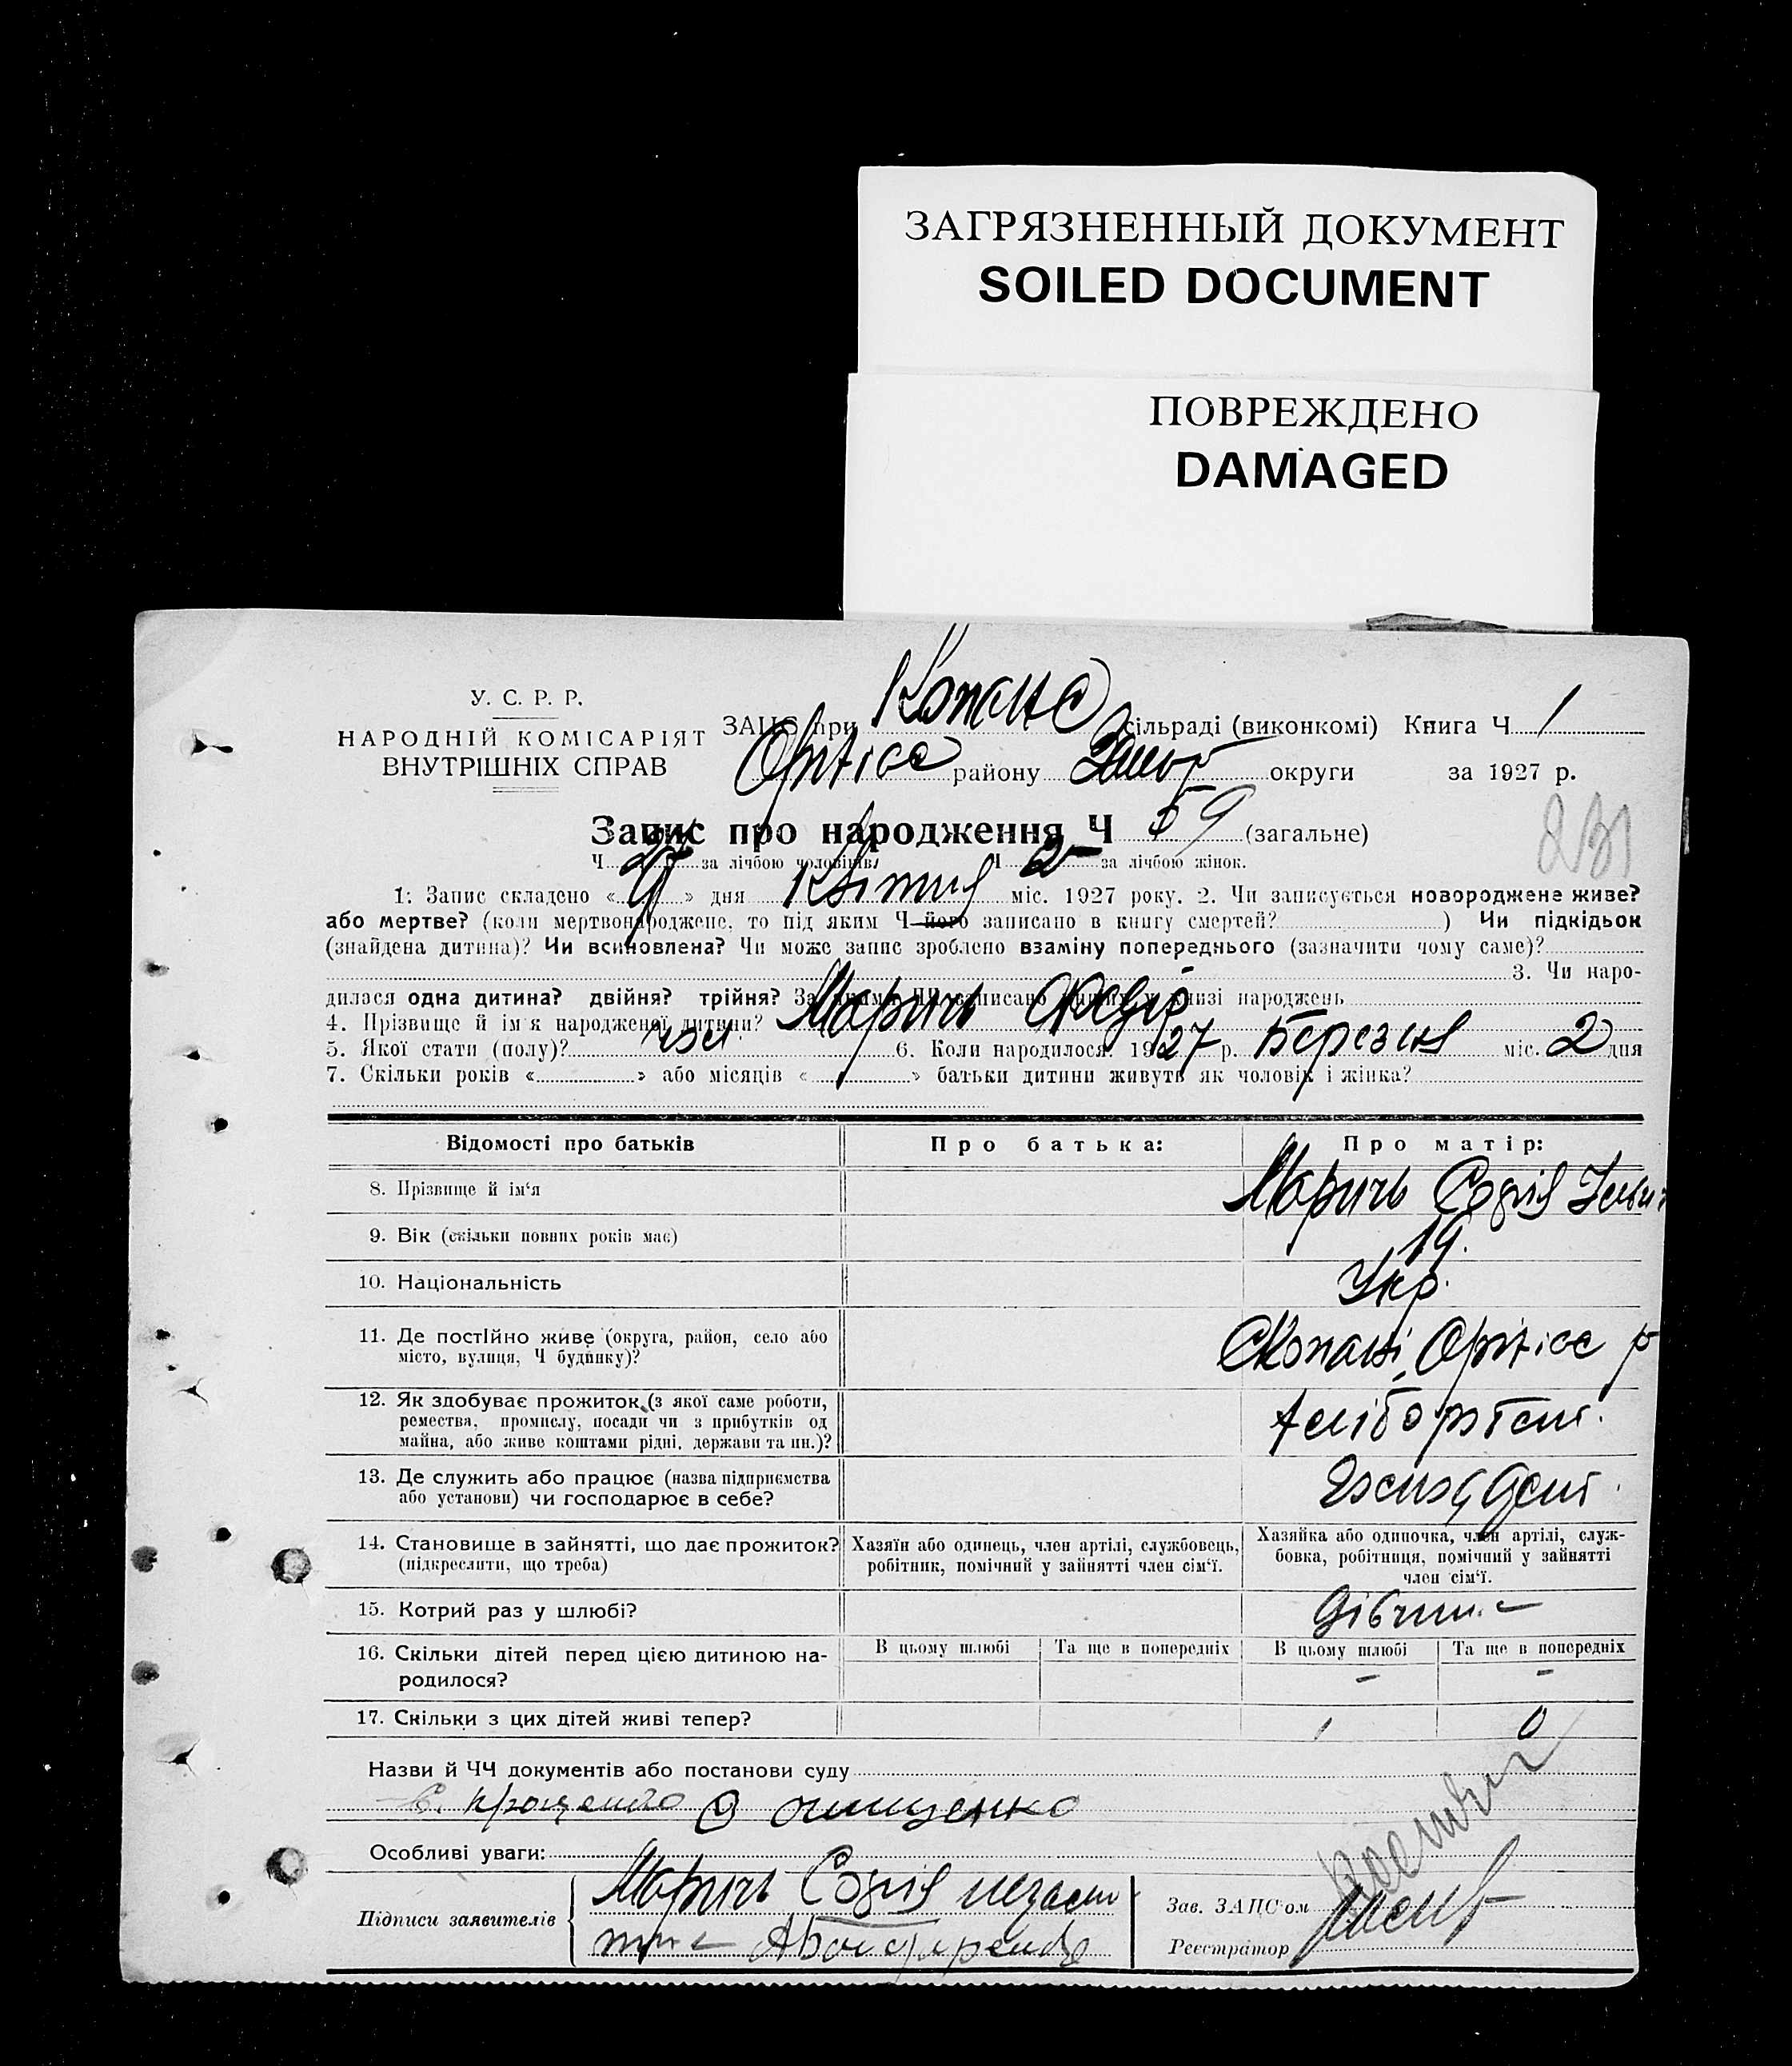 ЗАГРЯЗНЕННЫЙ ДОКУМЕНТ
SOILED DOCUMENT
ПОВРЕЖДЕНО
DAMAGED
У. С. Р. Р.
НАРОДНІЙ КОМІСАРІЯТ
ВНУТРІШНІХ СПРАВ
ЗАЦС при сільраді (виконкомі) Книга Ч 1
району округи за 1927 р.
Запис про народження Ч 59 (загальне)
Ч за лічбою чоловіків. Ч за лічбою жінок.
1. Запис складено « 9 » дня Квітня міс. 1927 року. 2. Чи записується новороджене живе?
або мертве? (коли мертвонароджене, то під яким Ч його записано в книгу смертей? ) Чи підкідьок
(знайдена дитина)? Чи всиновлена? Чи може запис зроблено взаміну попереднього (зазначити чому саме)?
3. Чи наро-
дилася одна дитина? двійня? трійня? За записано в книзі народжень
4. Прізвище й ім'я народженої дитини? Марич Федір
5. Якої стати (полу)? чол. 6. Коли народилося? 1927 р. Березня міс. 2 дня
7. Скільки років « » або місяців « » батьки дитини живуть як чоловік і жінка?
Відомості про батьків Про батька: Про матір:
8. Прізвище й ім‘я Марич Софія
9. Вік (скільки повних років має) 19.
10. Національність Укр.
11. Де постійно живе (округа, район, село або
місто, вулиця, Ч будинку)?
12. Як здобуває прожиток (з якої саме роботи,
ремества, промислу, посади чи з прибутків од
майна, або живе коштами рідні, держави та ин.)?
13. Де служить або працює (назва підприємства
або установи) чи господарює в себе?
14. Становище в зайнятті, що дає прожиток?
(підкреслити, що треба)
Хазяїн або одинець, член артілі, службовець,
робітник, помічний у зайнятті член сім‘ї.
Хазяйка або одиночка, член артілі, служ-
бовка, робітниця, помічний у зайнятті
член сім‘ї.
15. Котрий раз у шлюбі? дівчина
16. Скільки дітей перед цією дитиною на-
родилося?
В цьому шлюбі Та ще в попередніх В цьому шлюбі Та ще в попередніх
- -
17. Скільки з цих дітей живі тепер? 1 0
Назви й ЧЧ документів або постанови суду
Особливі уваги:
Підписи заявителів Марич Софія
Зав. ЗАЦС‘ом
Реєстратор